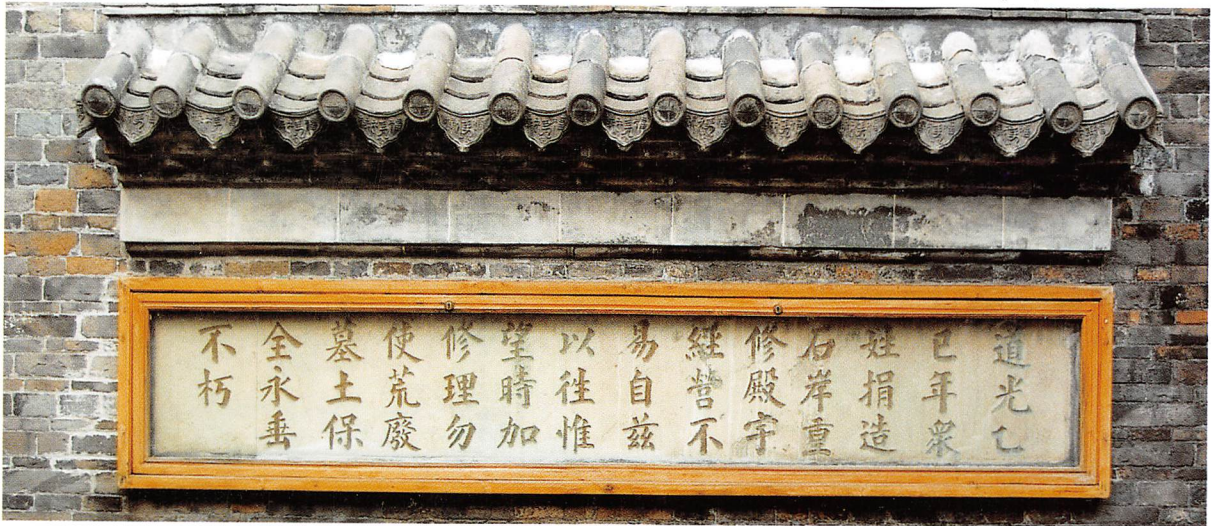 道光乙
巳年衆
姓捐造
石岸重
修殿宇
經營不
易自兹
以徃惟
望時加
修理勿
使荒廢
墓土保
全永垂
不朽